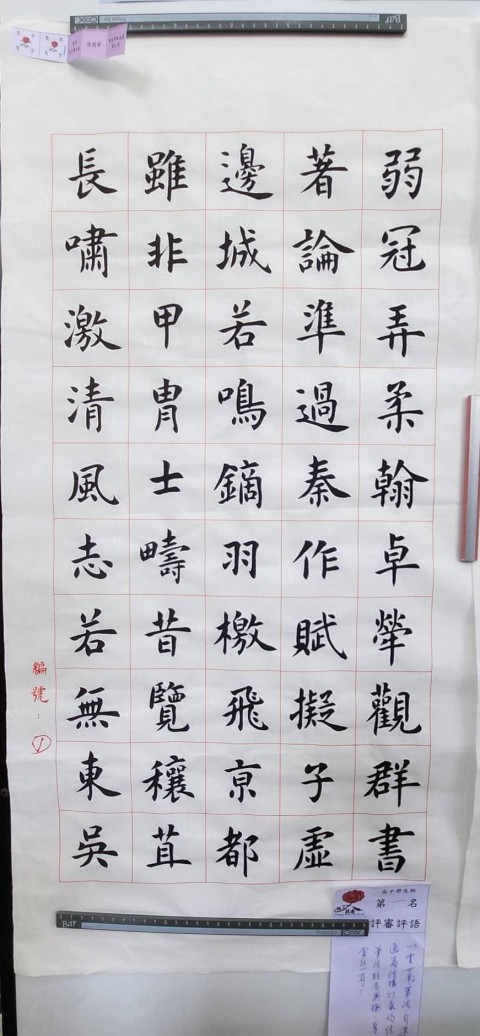 弱冠弄柔翰卓犖觀群書
著論準過秦作賦擬子虛
邊城若鳴鏑羽檄飛亰都
雖非甲冑士疇昔覽穰苴
長嘯激清風志若無東吳
編號：①
第一名
評審評語